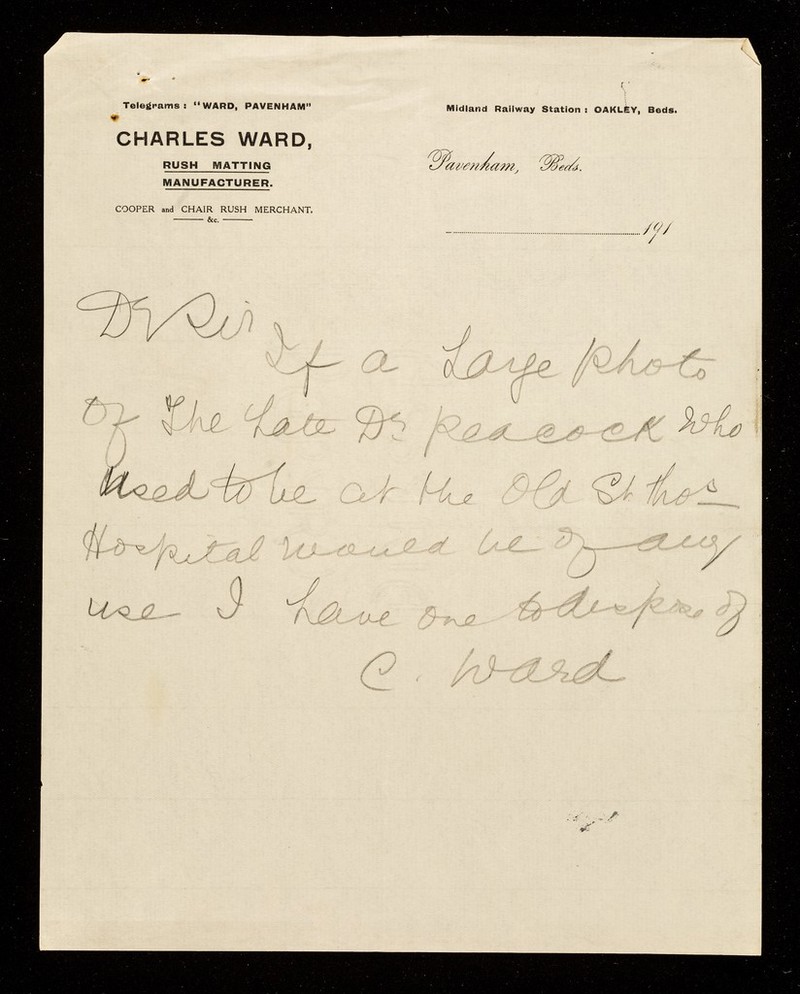 Telegrams : "WARD, PAVENHAM"
Midland Railway Station : OAKLEY, Beds.
CHARLES WARD,
RUSH MATTING
MANUFACTURER.
COOPER and CHAIR RUSH MERCHANT.
&c.
Pavenham, Beds.
191
Dr Sir
If a Large Photo
Of The Late Dr Peacock Who
Used to be at the Old St Thos
Hospital would be of any
use I have one to dispose of
C. Ward